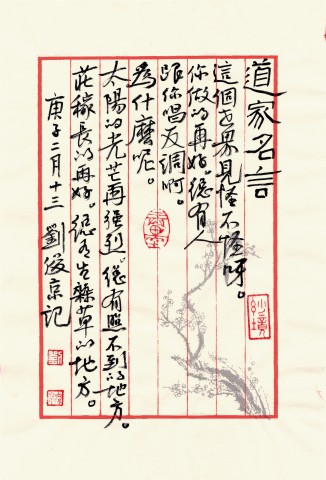 道家名言
這個世界見怪不怪呀。
你做的再好。總有人
跟你唱反調啊。
為什麼呢。
太陽的光芒再強烈。總有照不到的地方。
莊稼長的再好。總有生雜草的地方。
庚子二月十三 劉俊京記